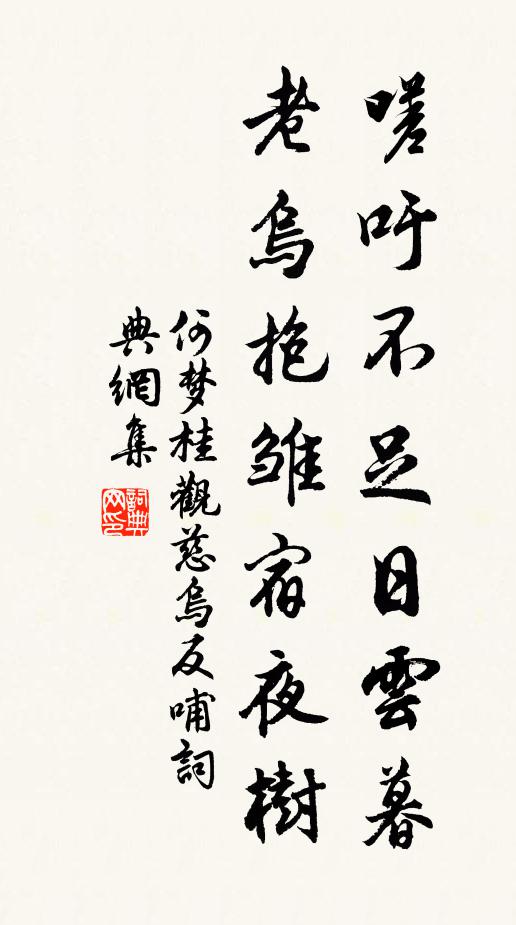 嗟吁不足日雲暮
老烏抱雛宿夜樹
何梦桂觀慈烏反哺詞
典網集
詞典网印